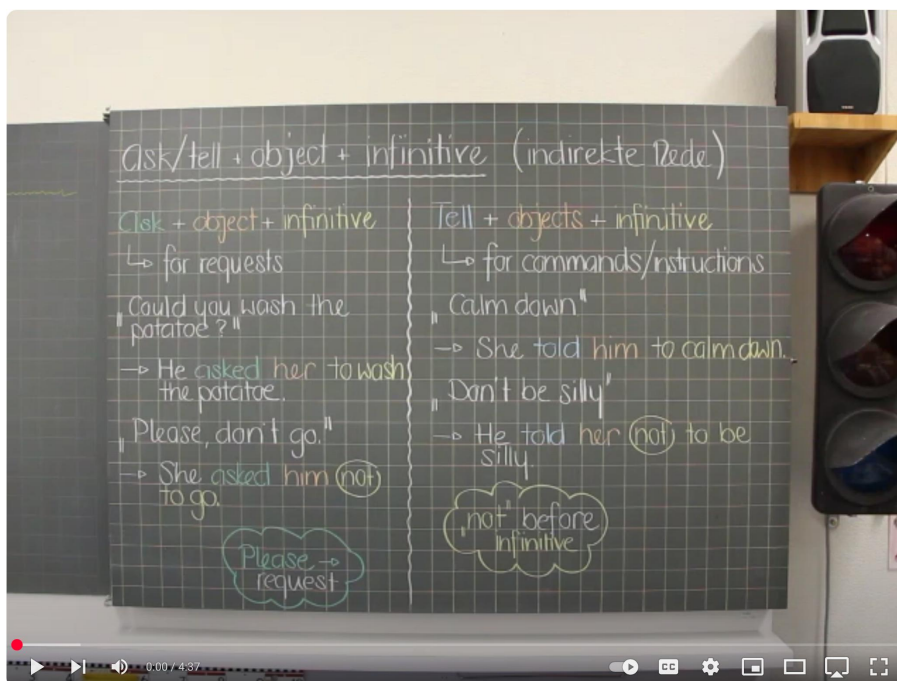 Ask/tell + object + infinitive (indirekte Rede)
Ask + object + infinitive
↳ for requests
„Could you wash the
potatoe?"
→ He asked her to wash
the potatoe.
„Please, don't go."
→ She asked him not
to go.
Please →
request
Tell + objects + infinitive
↳ for commands/instructions
„Calm down"
→ She told him to calm down.
„Don't be silly"
→ He told her not to be
silly.
„not" before
infinitive
0:00 / 4:37
CC